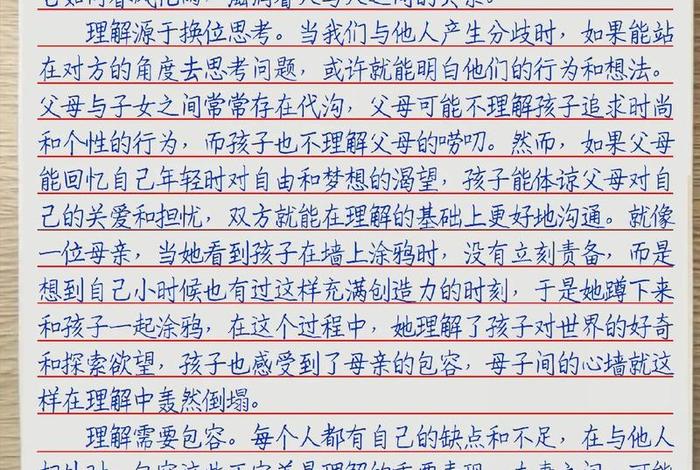 理解源于换位思考。当我们与他人产生分歧时，如果能站
在对方的角度去思考问题，或许就能明白他们的行为和想法。
父母与子女之间常常存在代沟，父母可能不理解孩子追求时尚
和个性的行为，而孩子也不理解父母的唠叨。然而，如果父母
能回忆自己年轻时对自由和梦想的渴望，孩子能体谅父母对自
己的关爱和担忧，双方就能在理解的基础上更好地沟通。就像
一位母亲，当她看到孩子在墙上涂鸦时，没有立刻责备，而是
想到自己小时候也有过这样充满创造力的时刻，于是她蹲下来
和孩子一起涂鸦，在这个过程中，她理解了孩子对世界的好奇
和探索欲望，孩子也感受到了母亲的包容，母子间的心墙就这
样在理解中轰然倒塌。
理解需要包容。每个人都有自己的缺点和不足，在与他人